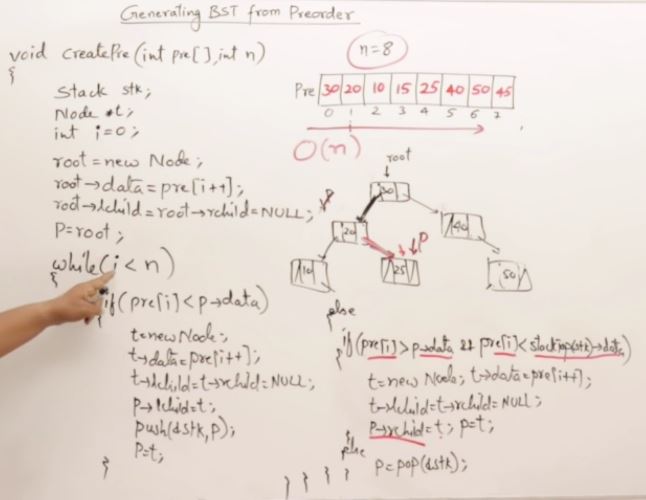 Generating BST from Preorder
void createPre(int pre[],int n)
{
Stack stk;
Node *t;
int i=0;
root=new Node;
root→data=pre[i++];
root→lchild=root→rchild=NULL;
P=root;
while(i<n)
{
if(pre[i]<p→data)
{
t=new Node;
t→data=pre[i++];
t→lchild=t→rchild=NULL;
P→lchild=t;
push(&stk,p);
P=t;
}
n=8
Pre 30 20 10 15 25 40 50 45
0 1 2 3 4 5 6 7
O(n)
root
30
P
20 40
P
10 25 50
else
{
if(pre[i]>p→data && pre[i]<stacktop(stk)→data)
{
t=new Node; t→data=pre[i++];
t→lchild=t→rchild=NULL;
P→rchild=t; p=t;
}
else
p=pop(&stk);
} } } }